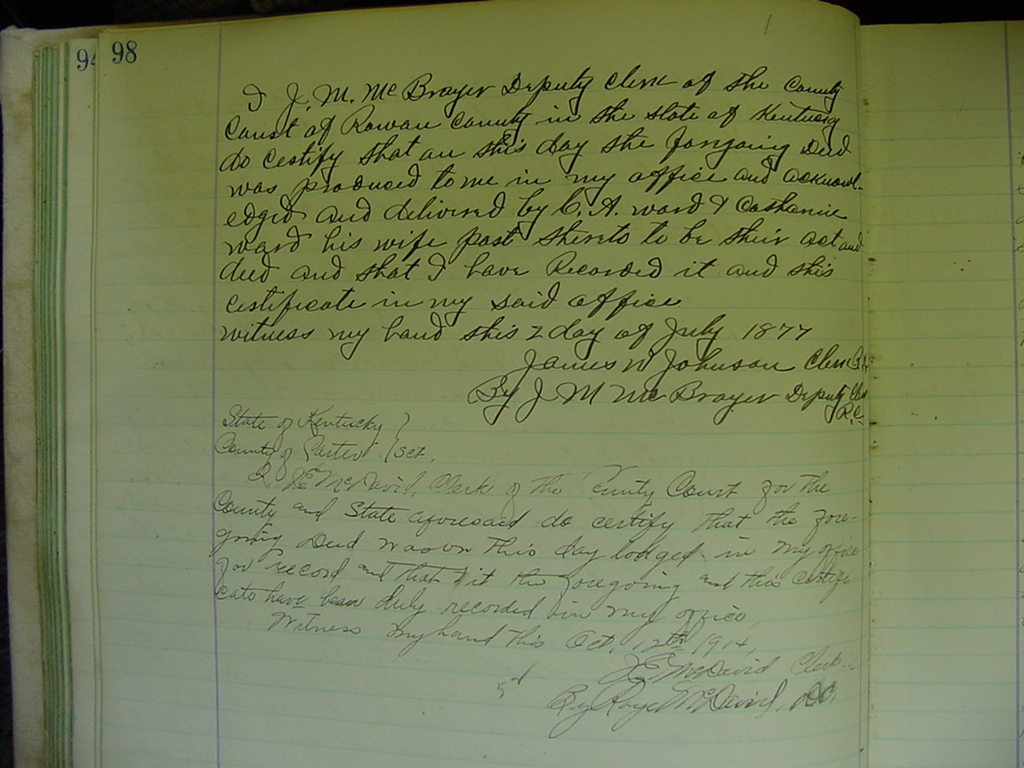 94 98
1
I J. M. McBrayer Deputy Clerk of the County
Court of Rowan County in the State of Kentucky
do certify that on this day the forgoing Deed
was produced to me in my office and acknowl-
edged and delivered by C. A. Ward & Catharine
Ward his wife part thereto to be their act and
deed and that I have Recorded it and this
certificate in my said office
witness my hand this 2 day of July 1877
James W Johnson Clerk
By J M McBrayer Deputy Clk
R.C.
State of Kentucky )
County of Carter ) Sct.
I JE McDavid, Clerk of the County Court for the
County and State aforesaid do certify that the fore-
going Deed was on this day lodged in my office
for record and that it the foregoing and this certifi
cate have been duly recorded in my office,
Witness my hand this Oct. 12th 1914,
JE McDavid Clerk
By McDavid, DC.